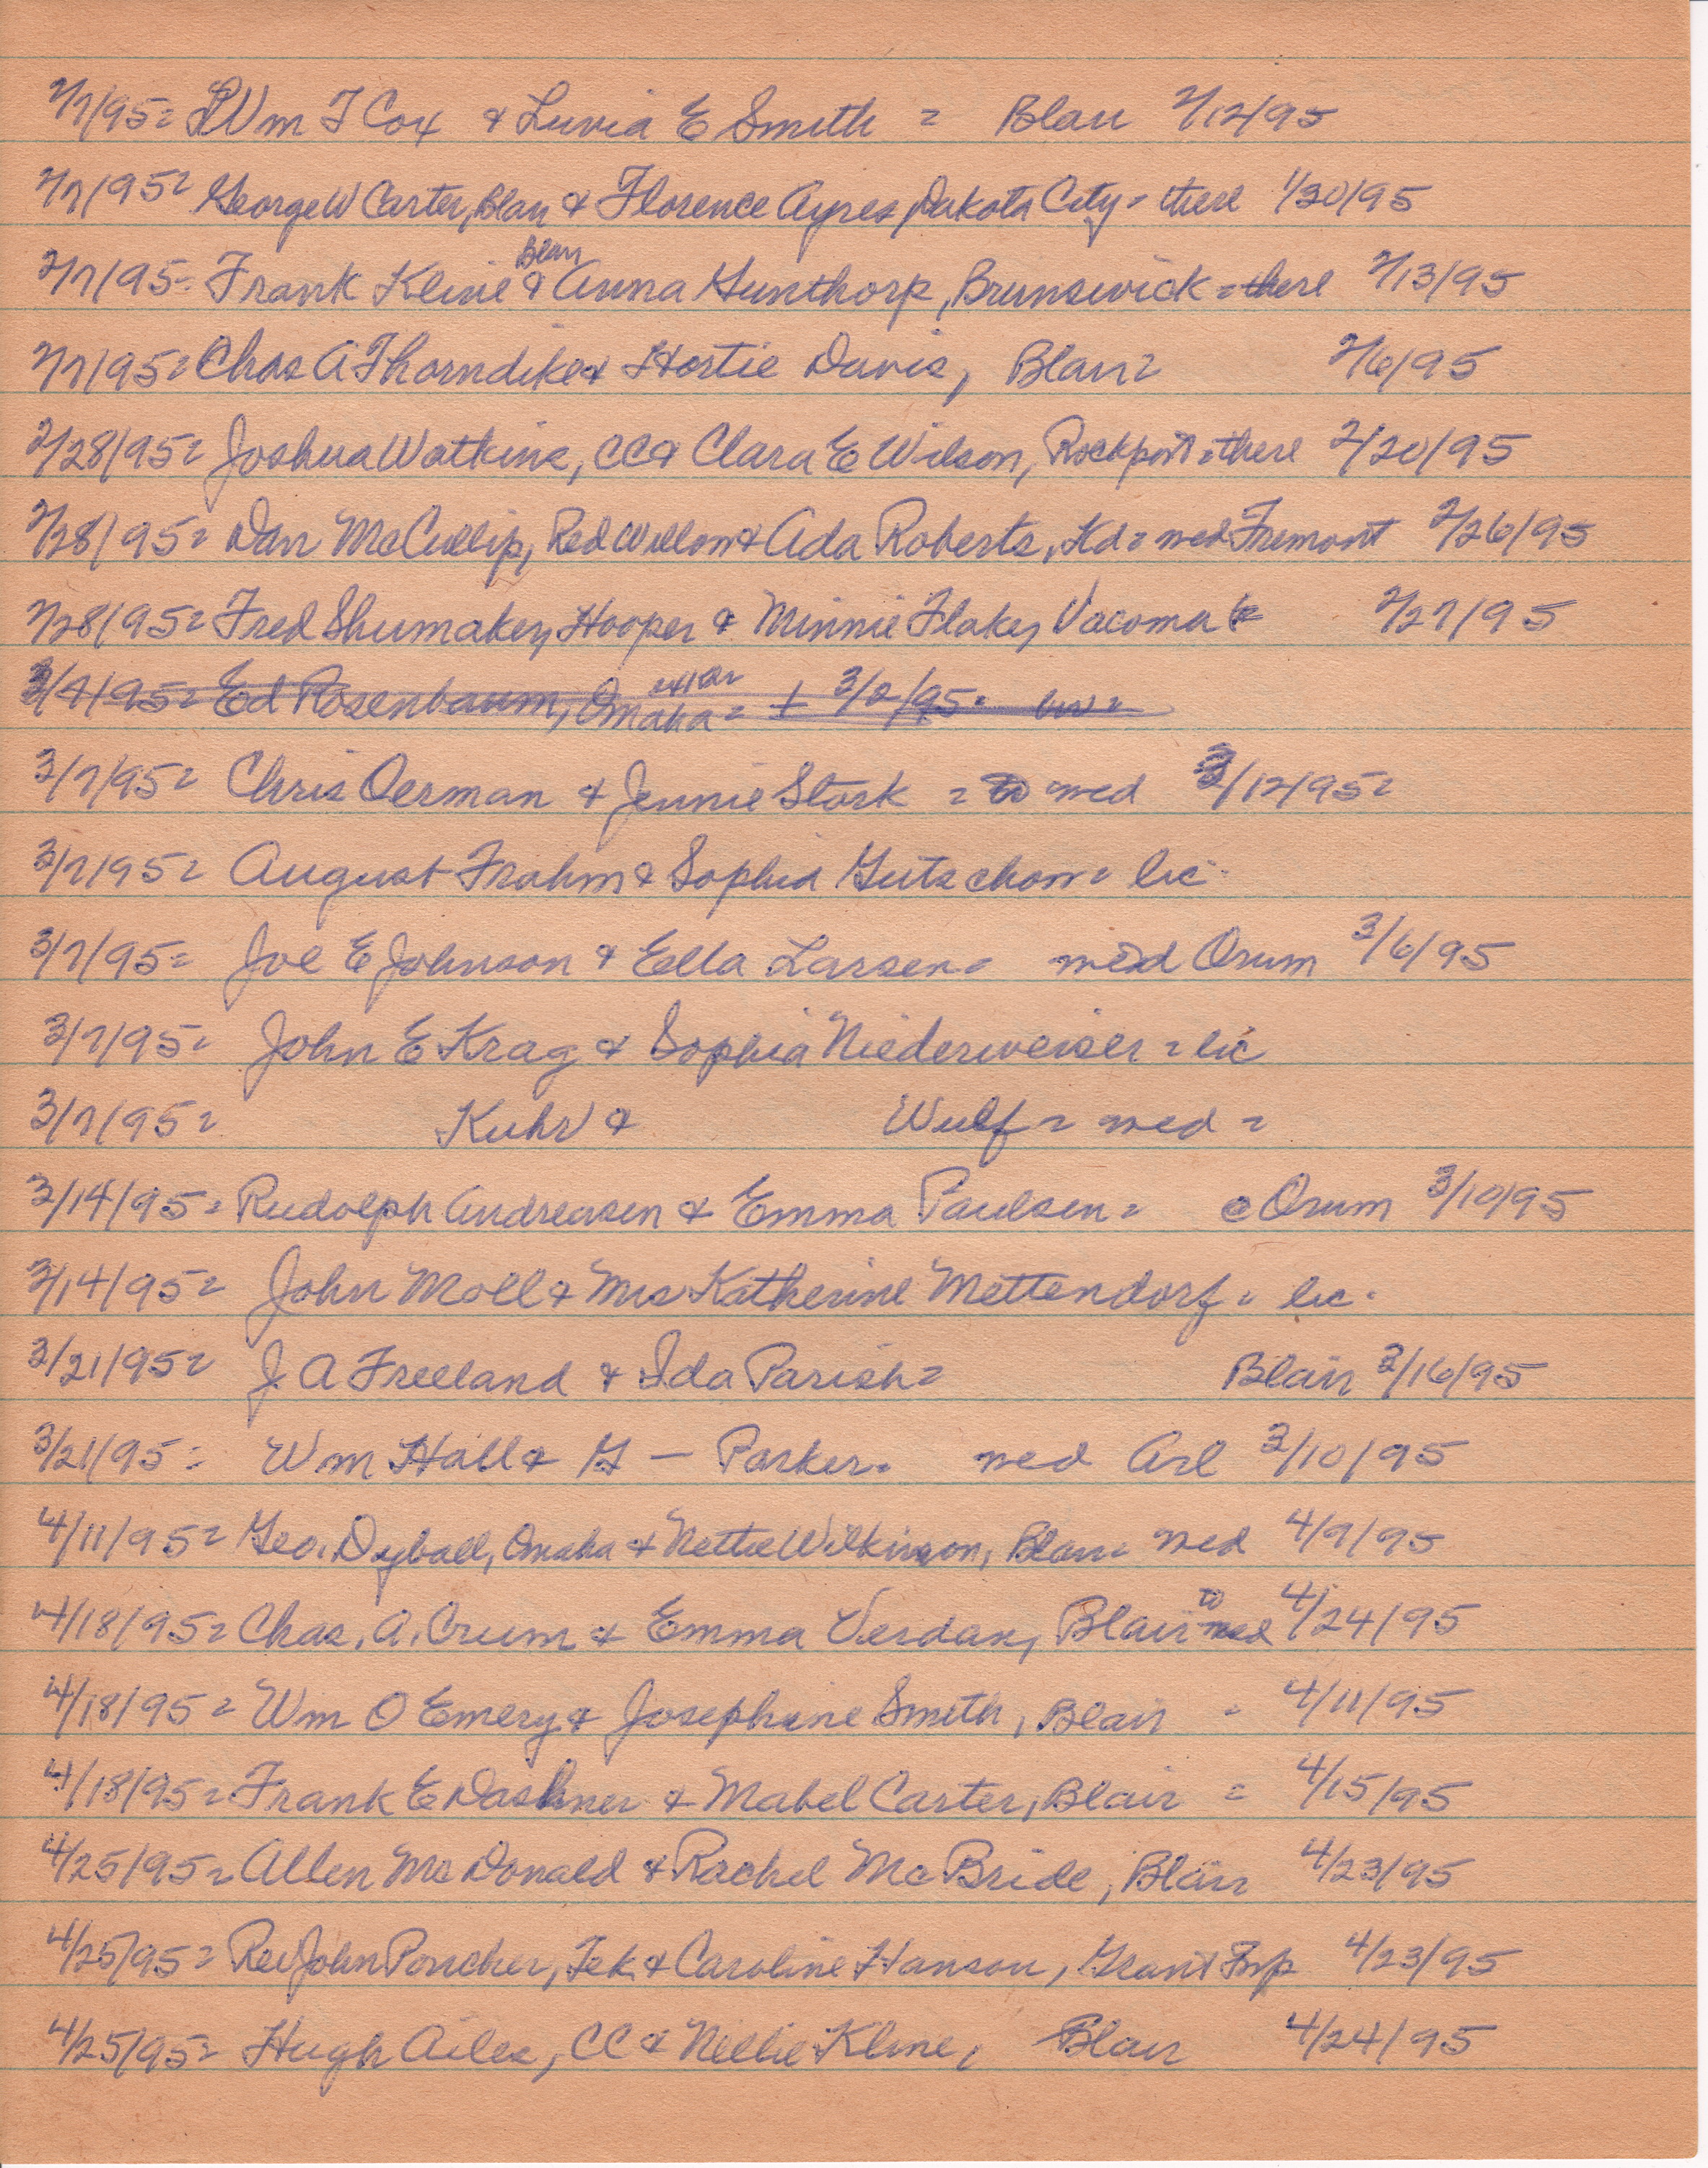 2/7/95= Wm T Cox & Luvia E Smith = Blair 2/12/95
2/7/95= George W Carter, Blair & Florence Ayres, Dakota City = there 1/30/95
Blair
2/7/95= Frank Kline & Anna Gunthorp, Brunswick = there 2/13/95
2/7/95= Chas A Thorndike & Hortie Davis, Blair= 2/6/95
2/28/95= Joshua Watkins, CC & Clara E Wilson, Rockport = there 2/20/95
2/28/95= Dan McCullip, Red Willow & Ada Roberts, Kd = med Fremont 2/26/95
2/28/95= Fred Shumaker, Hooper & Minnie Flake, Vacoma 2/27/95
3/4/95= Ed Rosenbaum, Omaha = + 3/2/95=
3/7/95= Chris Oerman & Jennie Stork = to med 3/12/95=
3/7/95= August Frahm & Sophia Gutschow = lic
3/7/95= Joe E Johnson & Ella Larsen = med Orum 3/6/95
3/7/95= John E Krag & Sophia Niederweiser = lic
3/7/95= Kuhr & Wulf = med =
3/14/95= Rudolph Andreasen & Emma Paulsen = @ Orum 3/10/95
3/14/95= John Moll & Mrs Katherine Mettendorf = lic.
3/21/95= J. A Freeland & Ida Parish= Blair 3/16/95
3/21/95= Wm Hall & G — Parker= med Arl 3/10/95
4/11/95= Geo. Dyball, Omaha & Nettie Wilkinson, Blair= med 4/9/95
to
4/18/95= Chas. A. Crum & Emma Verdan, Blair med 4/24/95
4/18/95= Wm O Emery & Josephine Smith, Blair = 4/11/95
4/18/95= Frank E Dashner & Mabel Carter, Blair = 4/15/95
4/25/95= Allen McDonald & Rachel McBride, Blair 4/23/95
4/25/95= Rev John Poucher, Tek & Caroline Hanson, Grant Twp 4/23/95
4/25/95= Hugh Ailes, CC & Nellie Kline, Blair 4/24/95